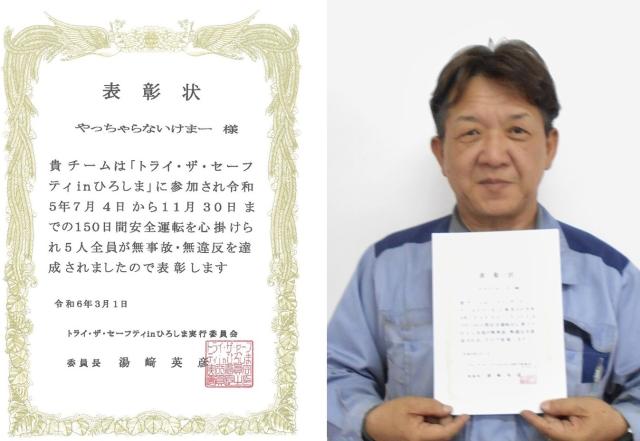 表彰状
やっちゃらないけまー 様
貴チームは「トライ・ザ・セーフ
ティinひろしま」に参加され令和
5年7月4日から11月30日ま
での150日間安全運転を心掛けら
れ5人全員が無事故・無違反を達
成されましたので表彰します
令和6年3月1日
トライ・ザ・セーフティinひろしま実行委員会
委員長 湯﨑英彦
表彰状